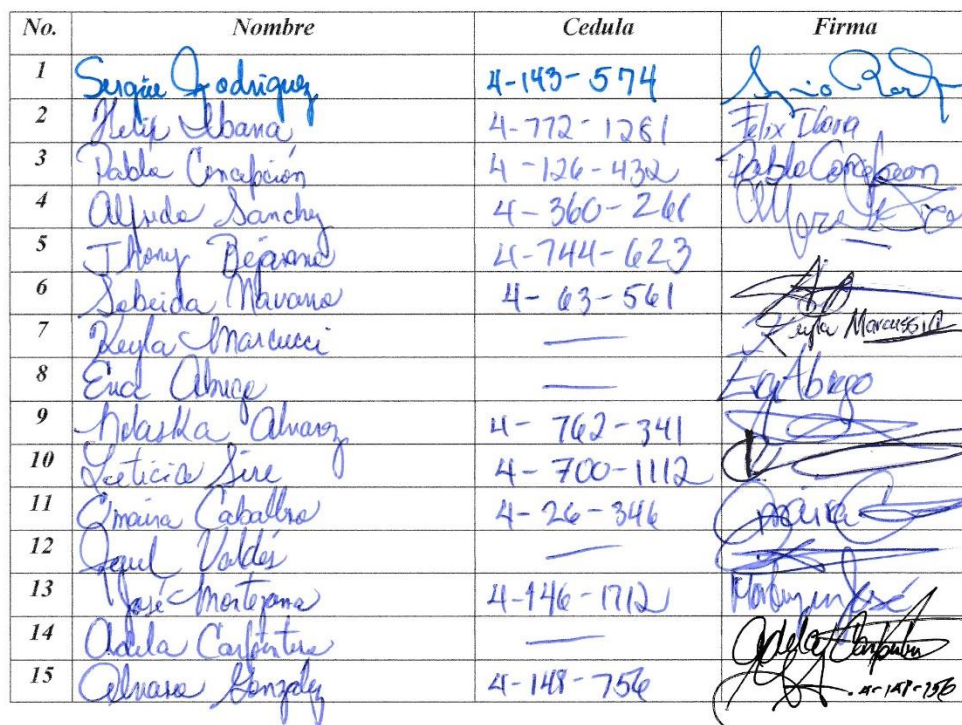 No. Nombre Cedula Firma
1 Sergio Rodriguez 4-143-574
2 Felix Ibarra 4-772-1281 Felix Ibarra
3 Pablo Concepción 4-126-432 Pablo Concepcion
4 Alfredo Sanchez 4-360-261
5 Jhony Bejarano 4-744-623 —
6 Sobeida Navarro 4-63-561
7 Keyla Marcucci — Keyla Marcussi
8 Erica Abrego — Abrego
9 Alvarez 4-762-341
10 Leticia Sire 4-700-1112
11 Omaira Caballero 4-26-346 Omaira C
12 Valdés —
13 José Montezuma 4-146-1712 José
14 Adela Carpintero — Adela Carpintero
15 Alvaro González 4-148-756 4-148-756